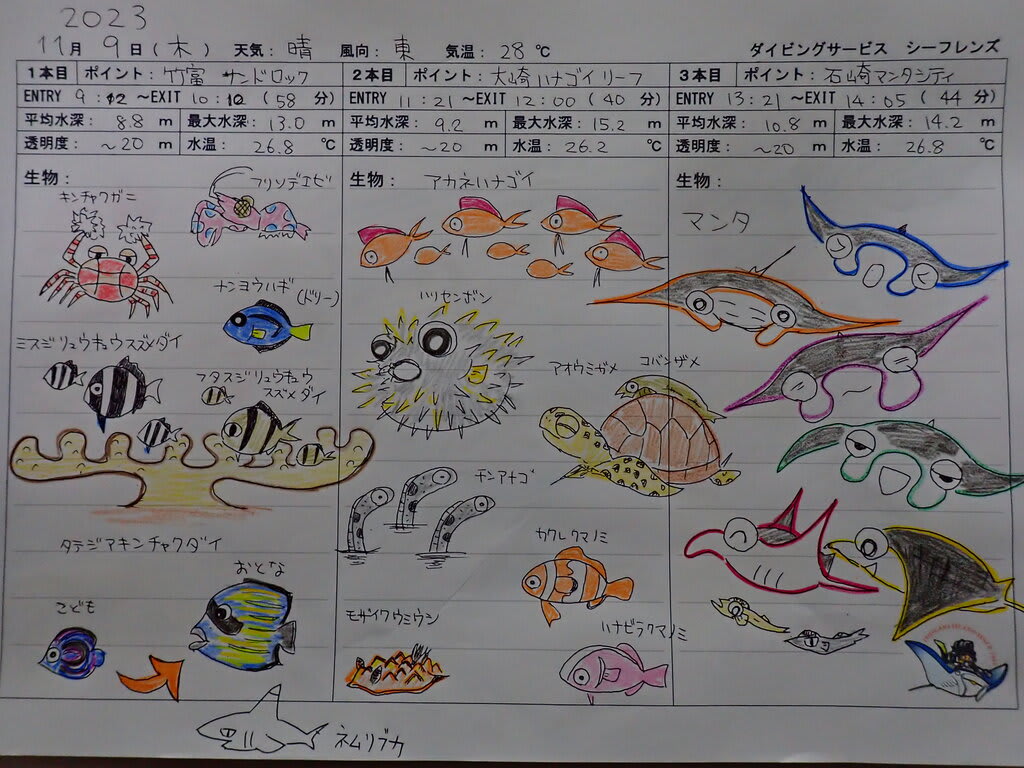 2023
11月 9日(木) 天気: 晴 風向: 東 気温: 28℃ ダイビングサービス シーフレンズ
1本目 ポイント: 竹富 サンドロック
ENTRY 9:12 ~EXIT 10:10 (58 分)
平均水深: 8.8 m 最大水深: 13.0 m
透明度: ~20 m 水温: 26.8 ℃
生物:
フリソデエビ
キンチャクガニ
ナンヨウハギ
(ドリー)
ミスジリュウキュウスズメダイ
フタスジリュウキュウ
スズメダイ
タテジマキンチャクダイ
おとな
こども
ネムリブカ
2本目 ポイント: 大崎ハナゴイリーフ
ENTRY 11:21 ~EXIT 12:00 (40 分)
平均水深: 9.2 m 最大水深: 15.2 m
透明度: ~20 m 水温: 26.2 ℃
生物: アカネハナゴイ
ハリセンボン
アオウミガメ
コバンザメ
チンアナゴ
カクレクマノミ
モザイクウミウシ
ハナビラクマノミ
3本目 ポイント: 石崎マンタシティ
ENTRY 13:21 ~EXIT 14:05 (44 分)
平均水深: 10.8 m 最大水深: 14.2 m
透明度: ~20 m 水温: 26.8 ℃
生物:
マンタ